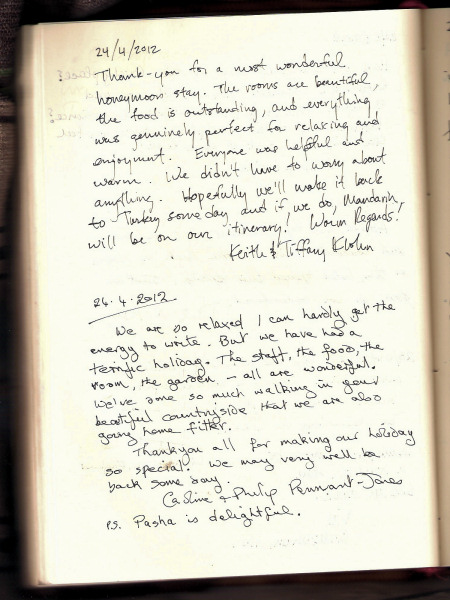 24/4/2012
Thank-you for a most wonderful
honeymoon stay. The rooms are beautiful,
the food is outstanding, and everything
was genuinely perfect for relaxing and
enjoyment. Everyone was helpful and
warm. We didn't have to worry about
anything. Hopefully we'll make it back
to Turkey some day and if we do, Mandarin,
will be on our itinerary! Warm Regards!
Keith & Tiffany
24.4.2012
We are so relaxed I can hardly get the
energy to write. But we have had a
terrific holiday. The staff, the food, the
room, the garden - all are wonderful.
We've done so much walking in your
beautiful countryside that we are also
going home fitter.
Thankyou all for making our holiday
so special. We may very well be
back some day.
Caroline & Philip Pennant-Jones
P.S. Pasha is delightful.